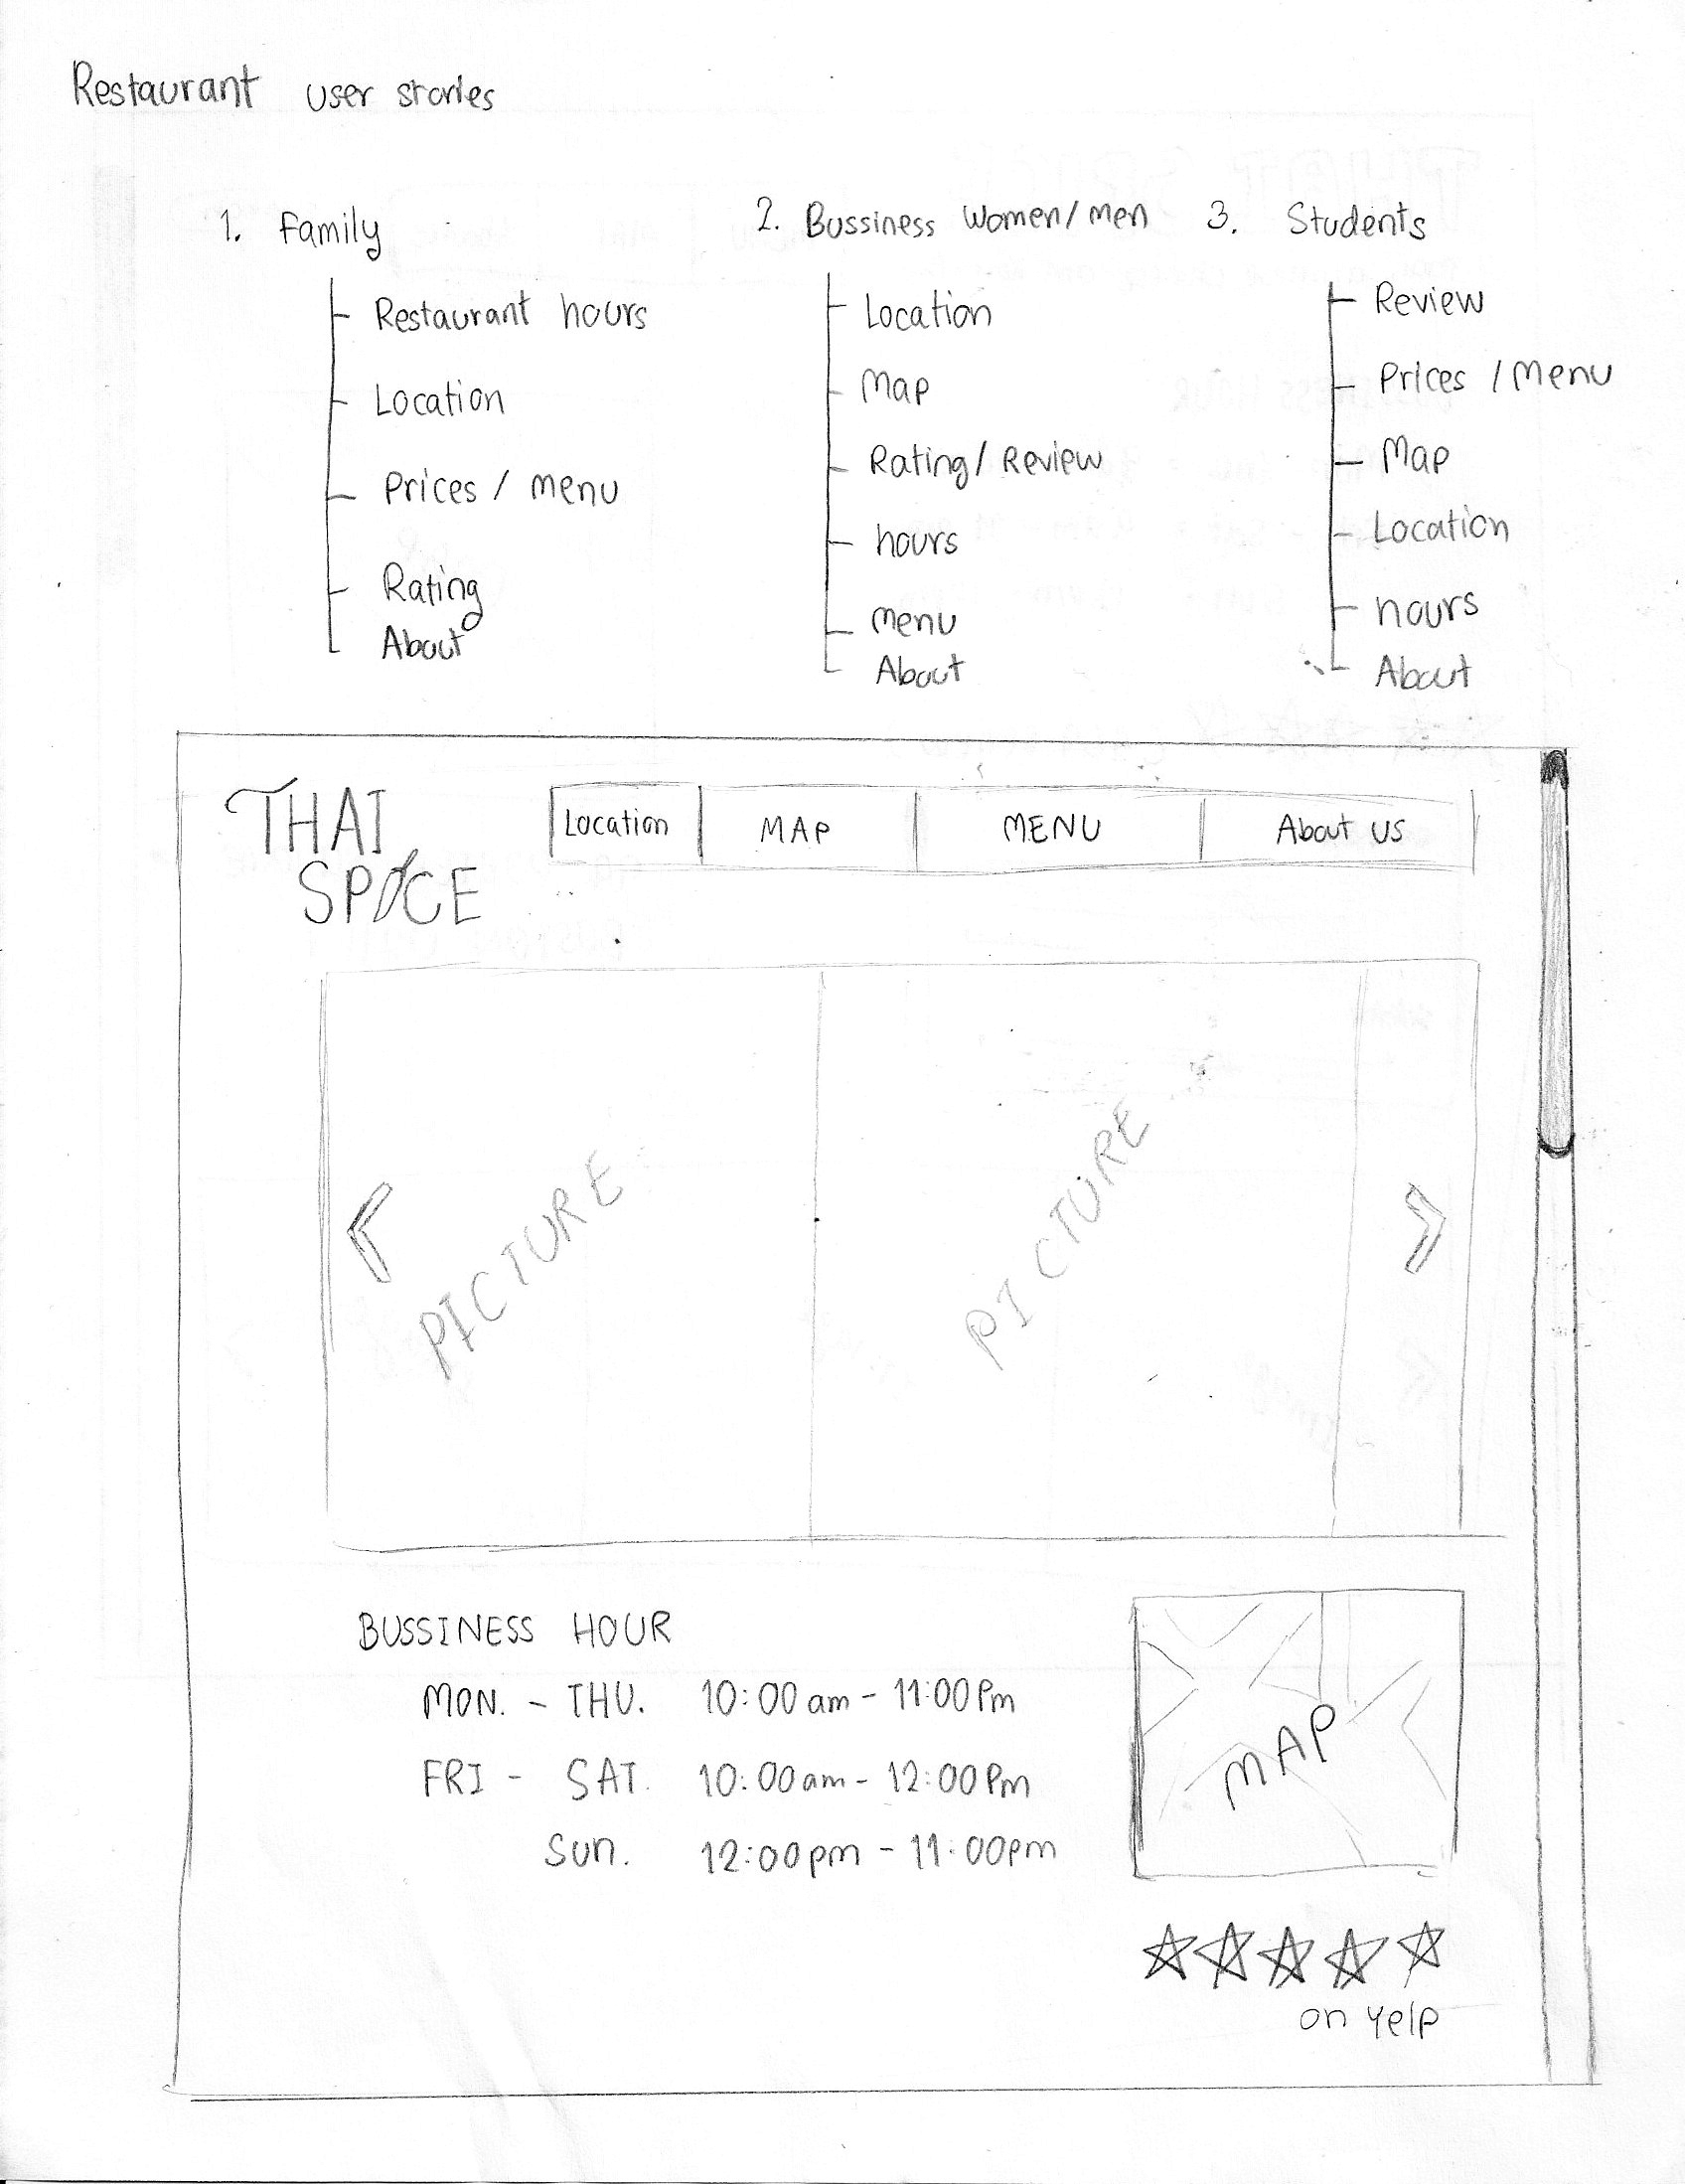 Restaurant user stories
1. Family
Restaurant hours
Location
Prices / menu
Rating
About
2. Bussiness Women/men
Location
Map
Rating/ Review
hours
menu
About
3. Students
Review
Prices / Menu
Map
Location
hours
About
THAI
SPICE
Location
MAP
MENU
About us
PICTURE
PICTURE
BUSSINESS HOUR
MON. - THU. 10:00 am - 11:00 Pm
FRI - SAT. 10:00 am - 12:00 Pm
Sun. 12:00 pm - 11:00 pm
MAP
on yelp